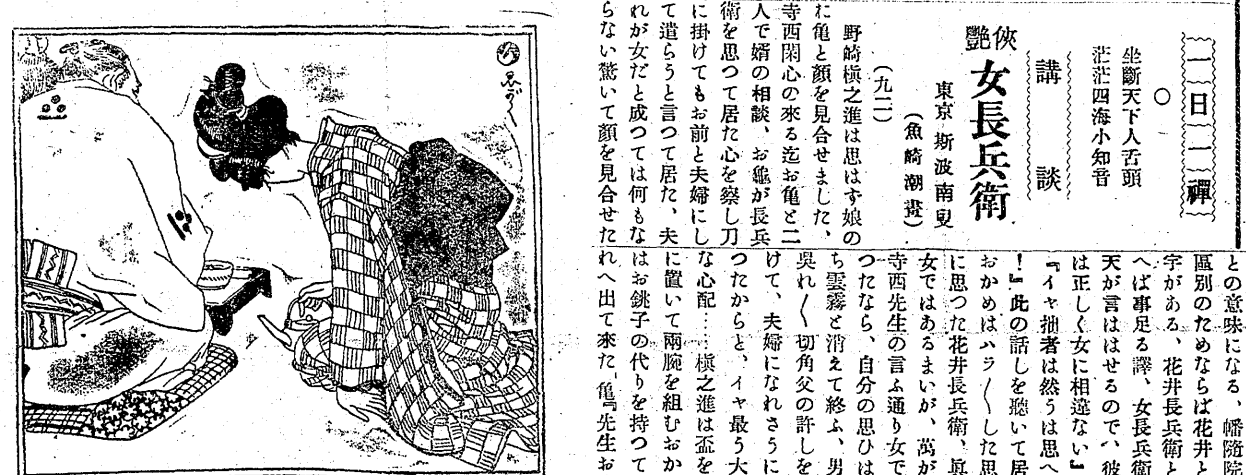 一日一禪
○
坐斷天下人舌頭
茫茫四海小知音
講談
俠艶 女長兵衛
東京 斯波南叟
(魚崎潮畫)
(九二)
野崎槇之進は思はす娘の
に亀と顔を見合せました、
寺西閑心の來る迄お亀と二
人で婿の相談、お龜が長兵
衛を思つて居た心を察し刀
に掛けてもお前と夫婦にし
て遣らうと言つて居た、夫
れが女だと成つては何もな
らない驚いて顔を見合せた
との意味になる、幡隨院
區別のためならば花井と
字がある、花井長兵衛と
へば事足る譯、女長兵衛
天が言ははせるので、彼
は正しく女に相違ない』
『イャ拙者は然うは思へ
！』此の話しを聽いて居
おかめはハラ〳〵した思
に思つた花井長兵衛、眞
女ではあるまいが、萬が
寺西先生の言ふ通り女で
つたなら、自分の思ひは
ち雲霧と消えて終ふ、男
呉れ〳〵切角父の許しを
けて、夫婦になれさうに
つたからと、イャ最う大
な心配…槇之進は盃を
に置いて兩腕を組むおか
はお銚子の代りを持つて
れへ出て来た亀『先生お